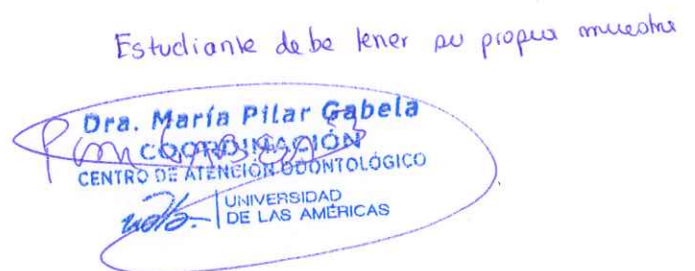 Estudiante debe tener su propia muestra
Dra. María Pilar Gabela
COORDINACIÓN
CENTRO DE ATENCIÓN ODONTOLÓGICO
udla.
UNIVERSIDAD
DE LAS AMÉRICAS